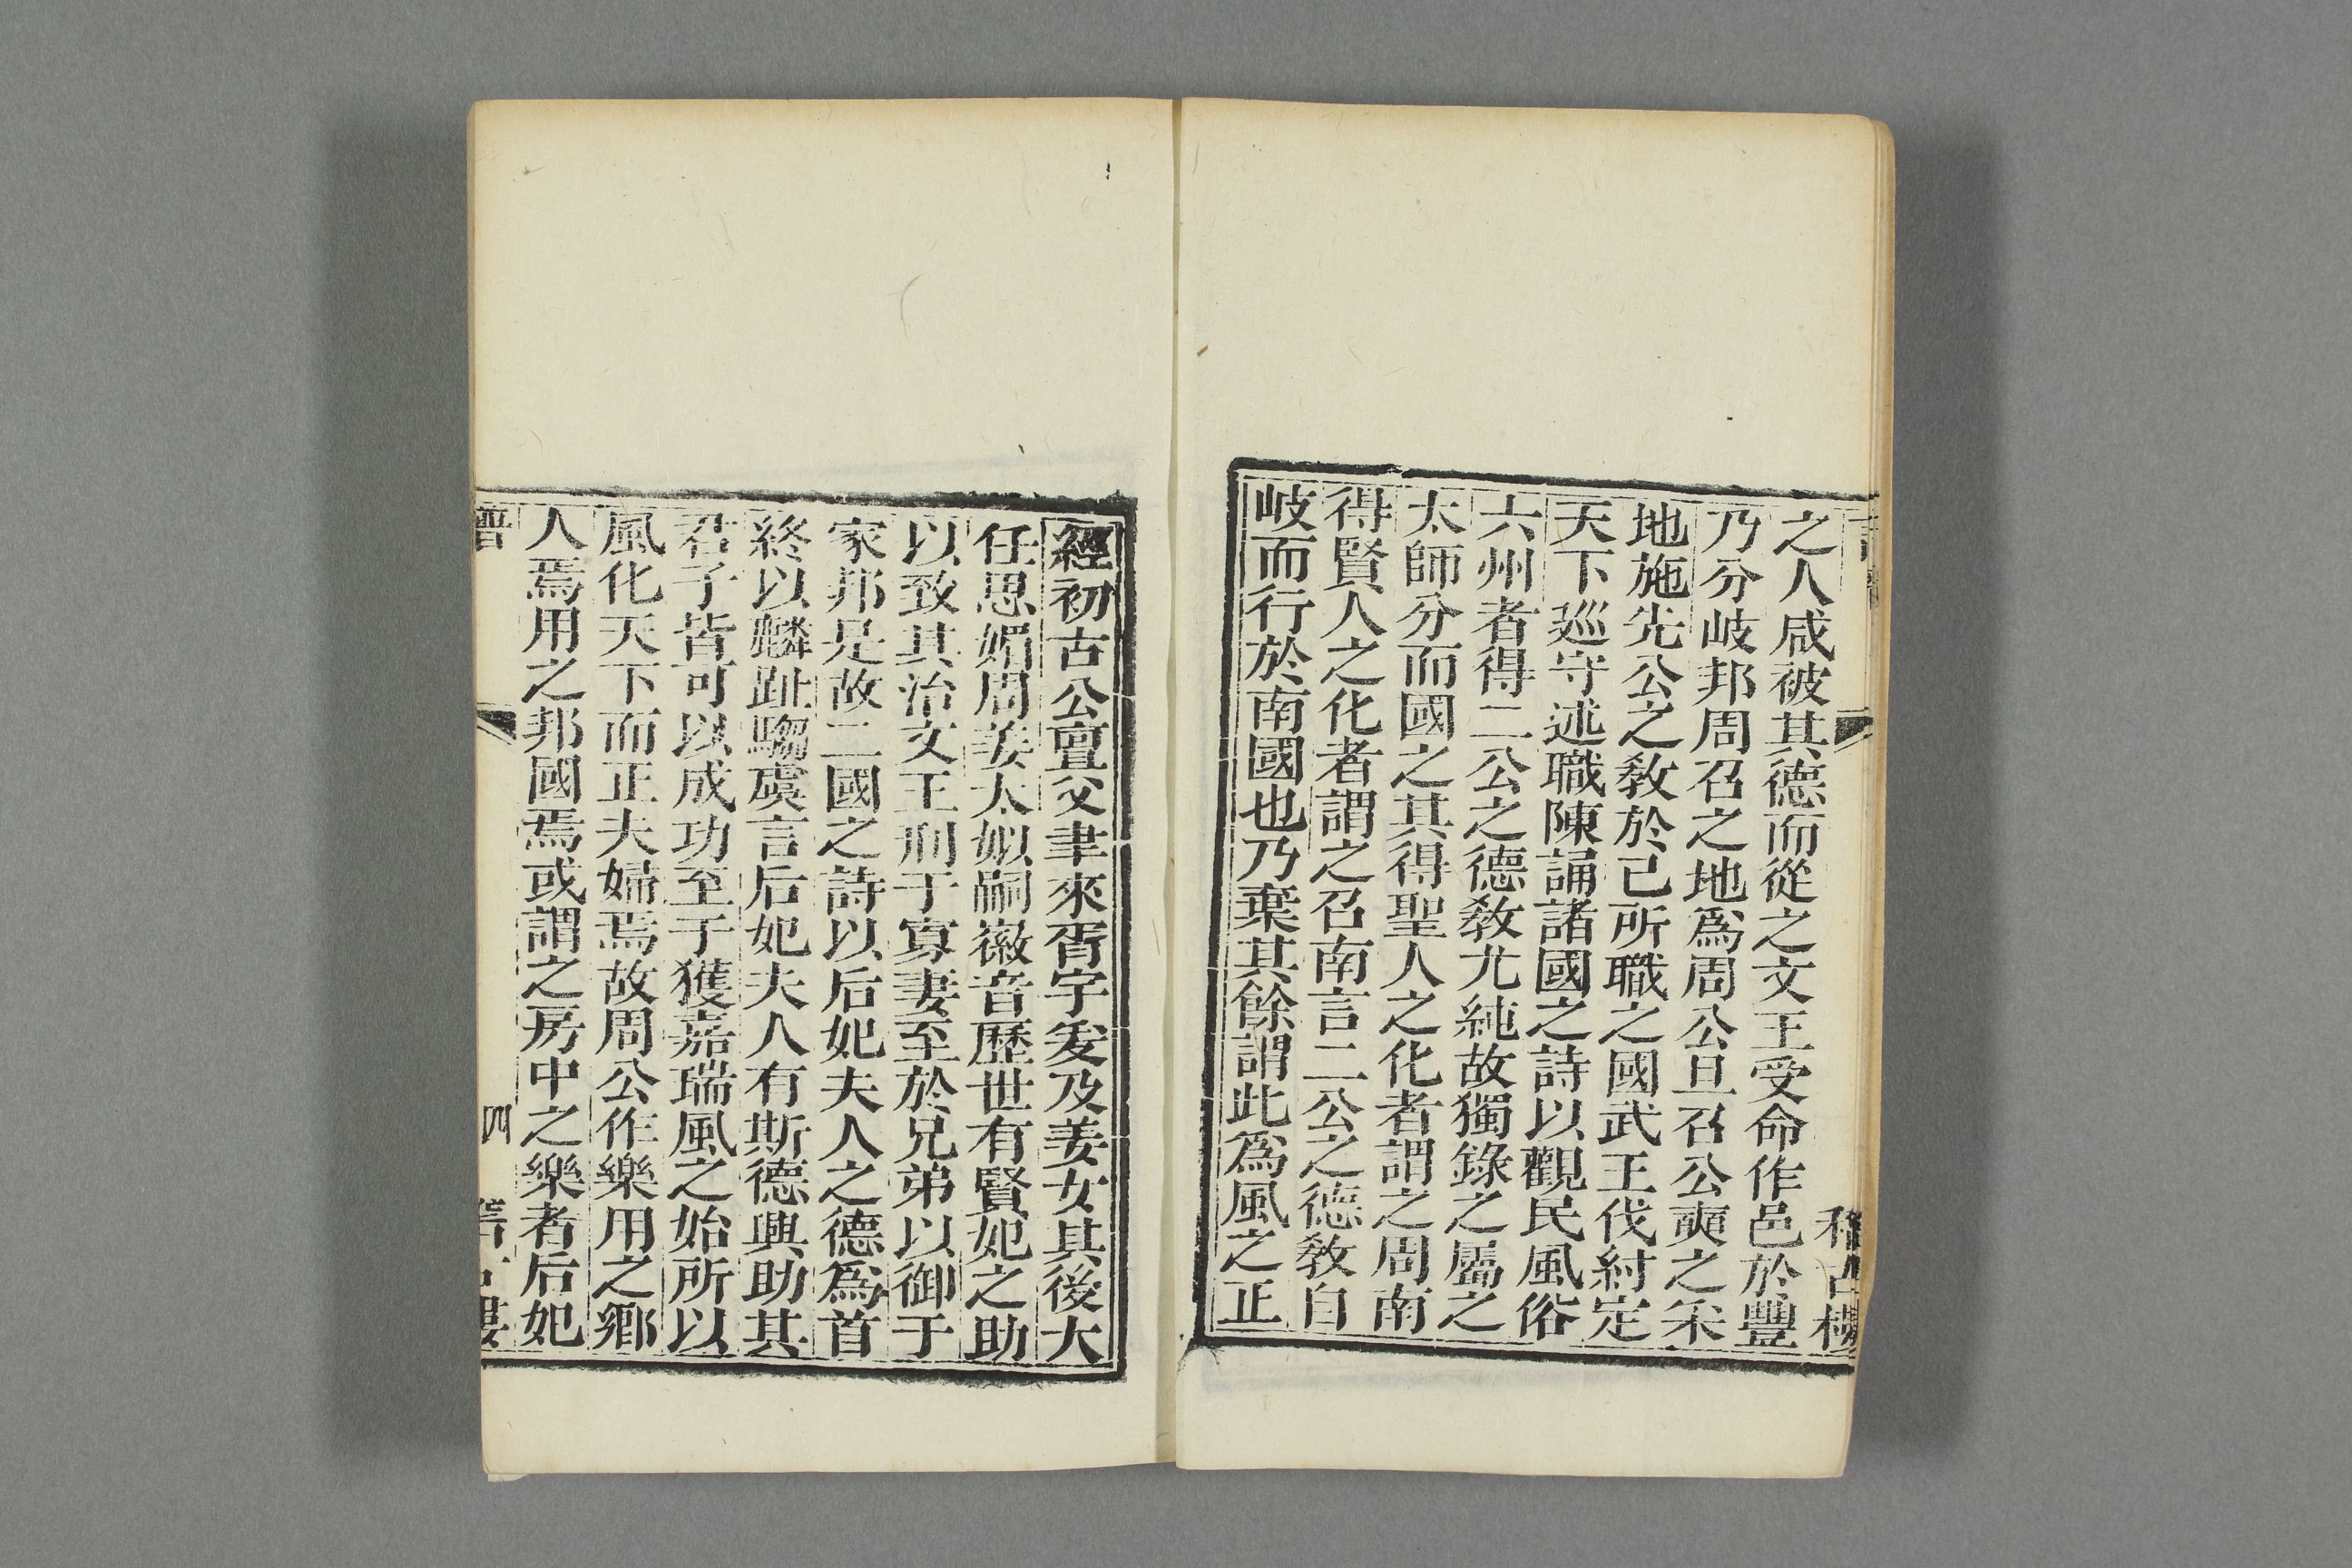 之人咸被其德而從之文王受命作邑於豐
乃分岐邦周召之地爲周公旦召公奭之采
地施先公之敎於己所職之國武王伐紂定
天下巡守述職陳誦諸國之詩以觀民風俗
六州者得二公之德敎尤純故獨錄之屬之
太師分而國之其得聖人之化者謂之周南
得賢人之化者謂之召南言二公之德敎自
岐而行於南國也乃棄其餘謂此爲風之正
經初古公亶父聿來胥宇爰及姜女其後大
任思媚周姜太姒嗣徽音歷世有賢妃之助
以致其治文王刑于寡妻至於兄弟以御于
家邦是故二國之詩以后妃夫人之德爲首
終以麟趾騶虞言后妃夫人有斯德興助其
君子皆可以成功至于獲嘉瑞風之始所以
風化天下而正夫婦焉故周公作樂用之鄉
人焉用之邦國焉或謂之房中之樂者后妃
四